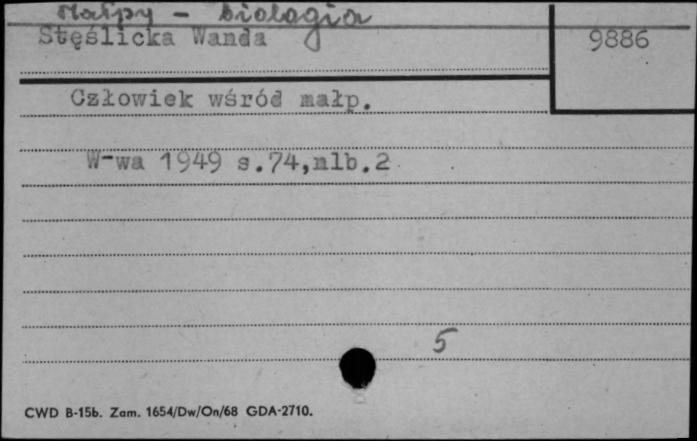 Małpy - biologia
Stęślicka Wanda
9886
Człowiek wśród małp.
W-wa 1949 s.74,nlb.2
5
CWD B-15b. Zam. 1654/Dw/On/68 GDA-2710.